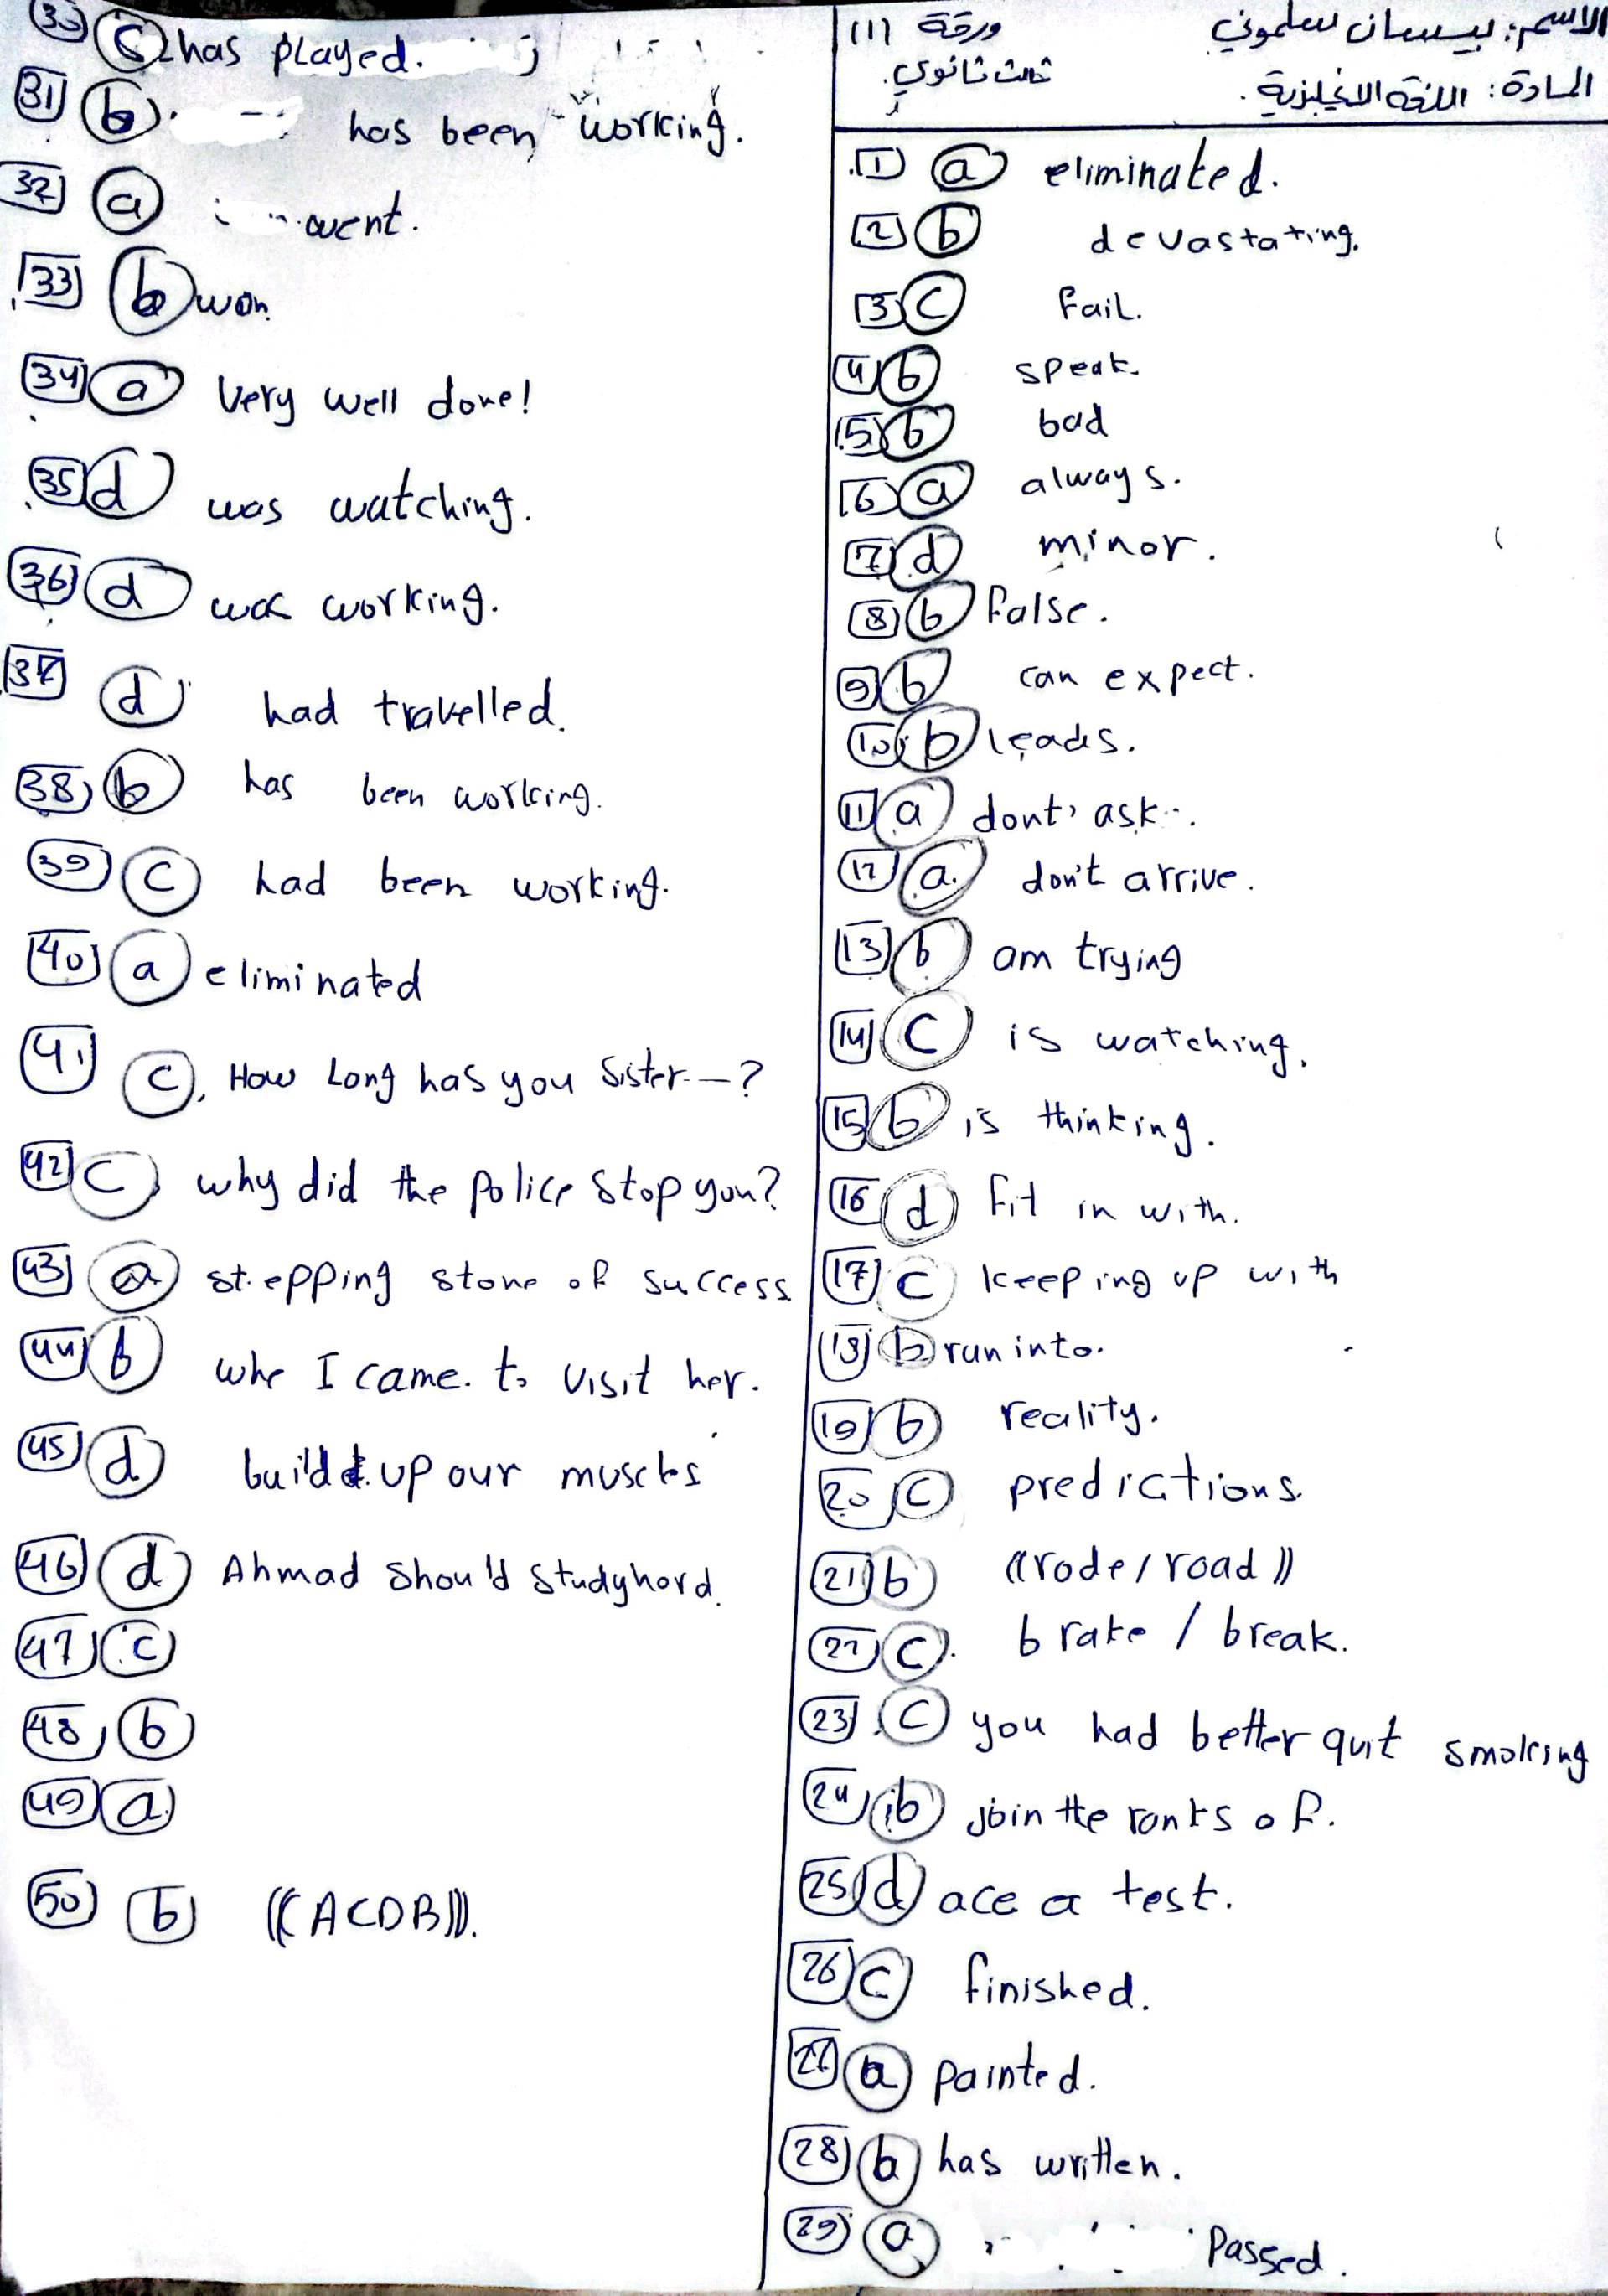 الاسم: بيسان سلموني
ورقة (1)
ثالث ثانوي.
المادة: اللغة الانجليزية.
1 a eliminated.
2 b devastating.
3 c fail.
4 b speak.
5 b bad
6 a always.
7 d minor.
8 b false.
9 b can expect.
10 b leads.
11 a dont' ask.
12 a. don't arrive.
13 b am trying
14 c is watching.
15 b is thinking.
16 d fit in with.
17 c keeping up with
18 b run into.
19 b reality.
20 c predictions.
21 b ((rode/road))
22 c. brake / break.
23 c you had better quit smoking
24 b join the ranks of.
25 d ace a test.
26 c finished.
27 a painted.
28 b has written.
29 a Passed.
30 c has played.
31 b. has been working.
32 a went.
33 b won.
34 a Very well done!
35 d was watching.
36 d was working.
37 d had travelled.
38 b has been working.
39 c had been working.
40 a eliminated
41 c, How Long has you Sister—?
42 c why did the police stop you?
43 a stepping stone of success
44 b whe I came. to visit her.
45 d build up our muscles
46 d Ahmad should study hard.
47 c
48 b
49 a
50 b ((ACDB)).